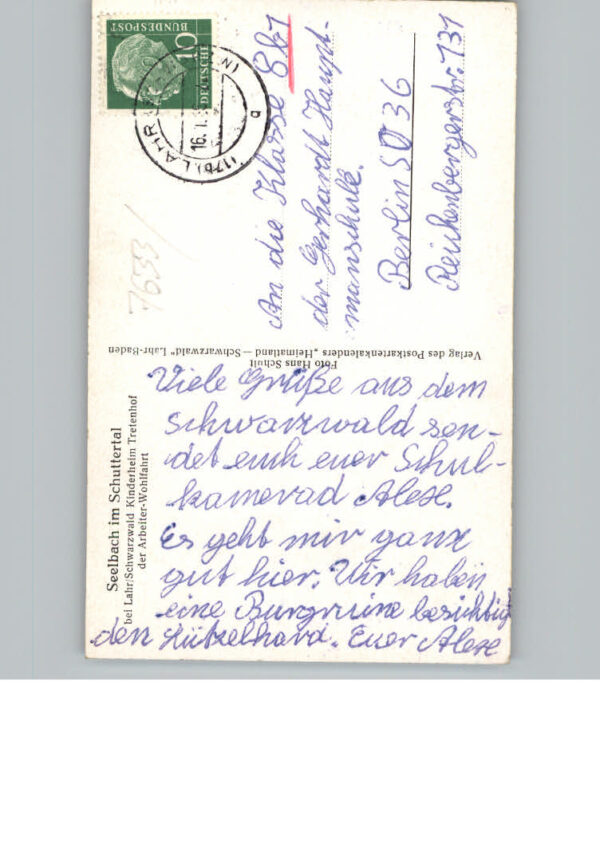 10
DEUTSCHE
BUNDESPOST
(17b) LAHR
16.1.
a
An die Klasse 8b1
der Gerhardt Haupt-
manschule.
Berlin SO 36
Reichenbergerstr. 131
7633/
Verlag des Postkartenkalenders „Heimatland — Schwarzwald" Lahr-Baden
Foto Hans Schult
Seelbach im Schuttertal
bei Lahr/Schwarzwald Kinderheim Tretenhof
der Arbeiter-Wohlfahrt
Viele Grüße aus dem
Schwarzwald sen-
det euch euer Schul-
kamerad Alex.
Es geht mir ganz
gut hier. Wir haben
eine Burgruine besichtigt
den Lützelhard. Euer Alex